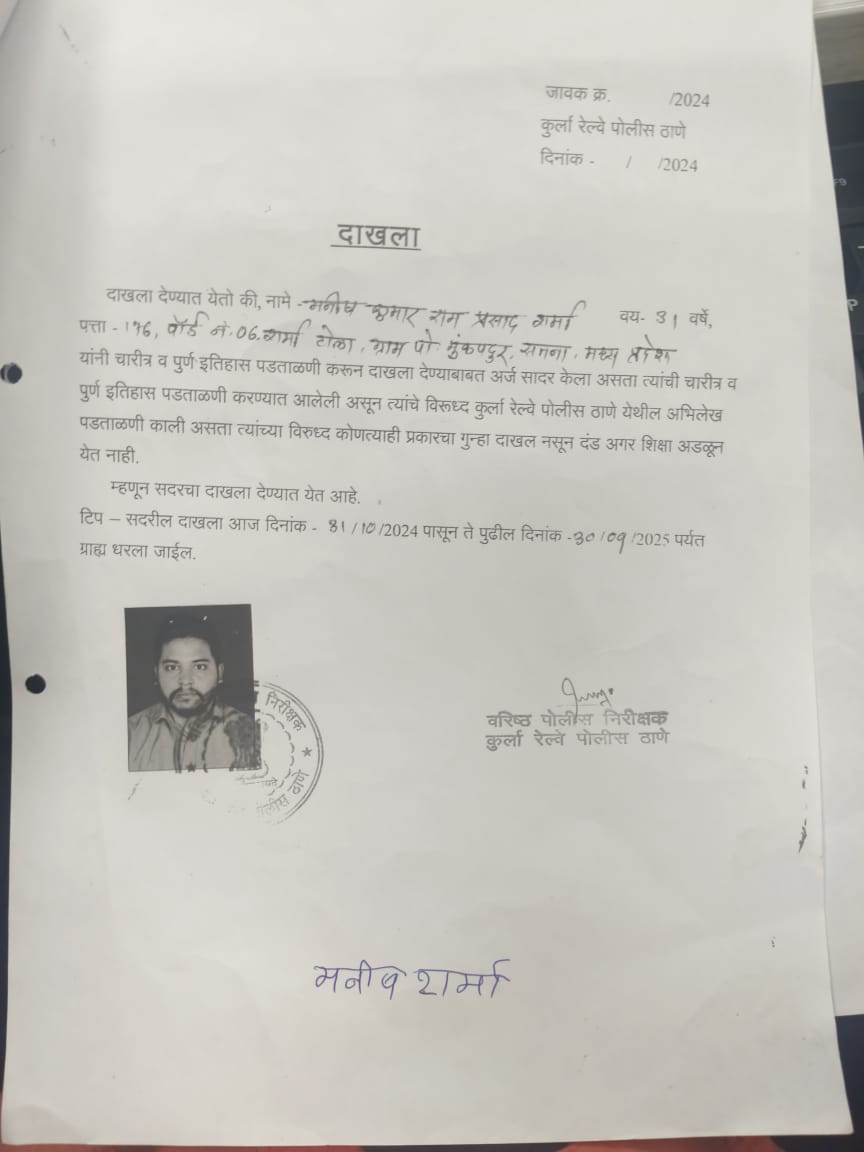 जावक क्र. /2024
कुर्ला रेल्वे पोलीस ठाणे
दिनांक - / /2024
दाखला
दाखला देण्यात येतो की, नामे - मनीष कुमार राम प्रसाद शर्मा वय- 31 वर्षे,
पत्ता - 176, वॉर्ड नं. 06, शर्मा टोला, ग्राम पो. मध्य प्रदेश
यांनी चारीत्र व पुर्ण इतिहास पडताळणी करून दाखला देण्याबाबत अर्ज सादर केला असता त्यांची चारीत्र व
पुर्ण इतिहास पडताळणी करण्यात आलेली असून त्यांचे विरूध्द कुर्ला रेल्वे पोलीस ठाणे येथील अभिलेख
पडताळणी काली असता त्यांच्या विरुध्द कोणत्याही प्रकारचा गुन्हा दाखल नसून दंड अगर शिक्षा अडळून
येत नाही.
म्हणून सदरचा दाखला देण्यात येत आहे.
टिप – सदरील दाखला आज दिनांक - 31/10/2024 पासून ते पुढील दिनांक -30/09/2025 पर्यत
ग्राह्य धरला जाईल.
निरीक्षक
पोलीस ठाणे
वरिष्ठ पोलीस निरीक्षक
कुर्ला रेल्वे पोलीस ठाणे
मनीष शर्मा